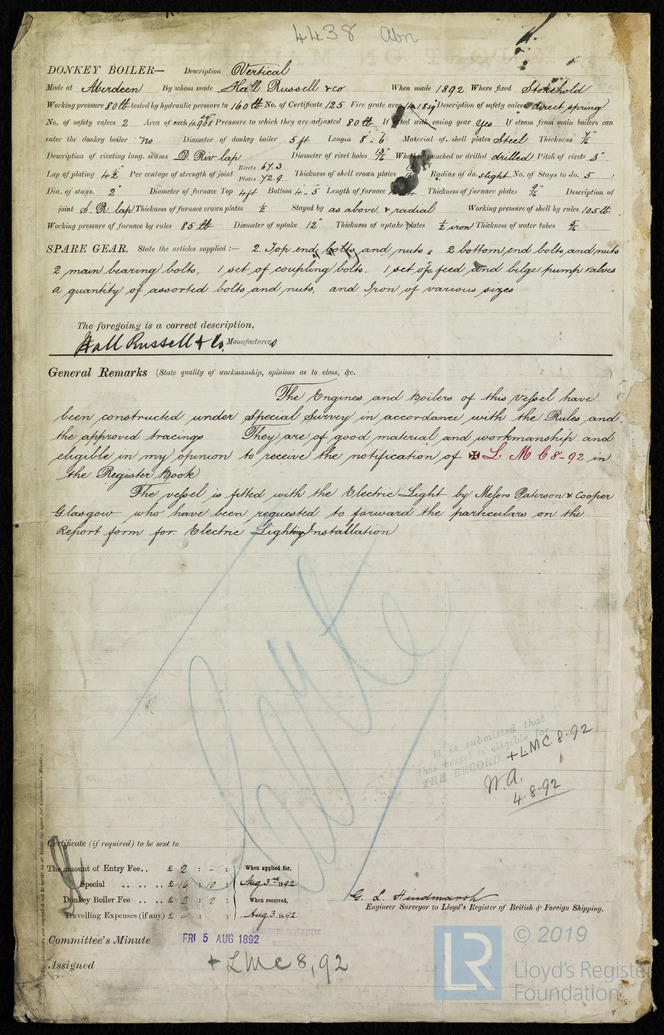 4438 Abn
DONKEY BOILER— Description Vertical
Made at Aberdeen By whom made Hall Russell & Co When made 1892 Where fixed Stokehold
Working pressure 80 lb tested by hydraulic pressure to 160 lb No. of Certificate 125 Fire grate area Description of safety valves direct spring
No. of safety valves 2 Area of each 4.908 Pressure to which they are adjusted 80 lb If fitted with easing gear yes If steam from main boilers can
enter the donkey boiler no Diameter of donkey boiler 5 ft Length 8-6 Material of shell plates Steel Thickness
Description of riveting long. seams D Riv lap Diameter of rivet holes Whether punched or drilled drilled Pitch of rivets 3"
Lap of plating 4½ Per centage of strength of joint Rivets 67.3 Plates 72.9 Thickness of shell crown plates Radius of do. slight No. of Stays to do. 5
Dia. of stays. 2" Diameter of furnace Top 4ft Bottom 4-5 Length of furnace Thickness of furnace plates Description of
joint S R lap Thickness of furnace crown plates ½ Stayed by as above & radial Working pressure of shell by rules 105 lb
Working pressure of furnace by rules 85 lb Diameter of uptake 12" Thickness of uptake plates ½ iron Thickness of water tubes
SPARE GEAR. State the articles supplied:— 2 Top end bolts and nuts, 2 bottom end bolts, and nuts
2 main bearing bolts, 1 set of coupling bolts, 1 set of feed and bilge pump valves
a quantity of assorted bolts and nuts, and Iron of various sizes
The foregoing is a correct description,
Hall Russell & Co. Manufacturers
General Remarks (State quality of workmanship, opinions as to class, &c.
The Engines and Boilers of this vessel have
been constructed under Special Survey in accordance with the Rules and
the approved tracings They are of good material and workmanship and
eligible in my opinion to receive the notification of ✠ L M C 8-92 in
the Register Book
The vessel is fitted with the Electric Light by Messrs Paterson & Cooper
Glasgow who have been requested to forward the particulars on the
Report form for Electric Lighting Installation
It is submitted that
this vessel is eligible for
THE RECORD. + LMC 8-92
4.8-92
Certificate (if required) to be sent to
The amount of Entry Fee.. £ 2 : - : When applied for,
Special .. .. .. £ 16 : 10 : Aug 3rd 1892
Donkey Boiler Fee .. £ 2 : 2 : When received,
Travelling Expenses (if any) £ Aug 3 1892
G. L. Hindmarsh
Engineer Surveyor to Lloyd's Register of British & Foreign Shipping.
Committee's Minute FRI 5 AUG 1892
Assigned + LMC 8,92
LR © 2019
Lloyd's Register
Foundation